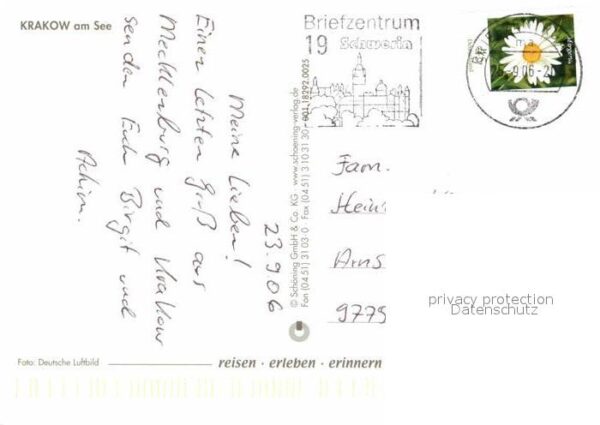 KRAKOW am See
23.9.06
Meine Lieben!
Einen letzten Gruß aus
Mecklenburg und Krakow
senden Euch Birgit und
Achim.
Briefzentrum
19 Schwerin
9.06-2
© Schöning GmbH & Co. KG · www.schoening-verlag.de
Fon (04 51) 3 10 3-0 · Fax (04 51) 3 10 31 30 · 001 18292 0025
Fam.
Hein
Arns
9775
privacy protection
Datenschutz
Foto: Deutsche Luftbild
reisen · erleben · erinnern